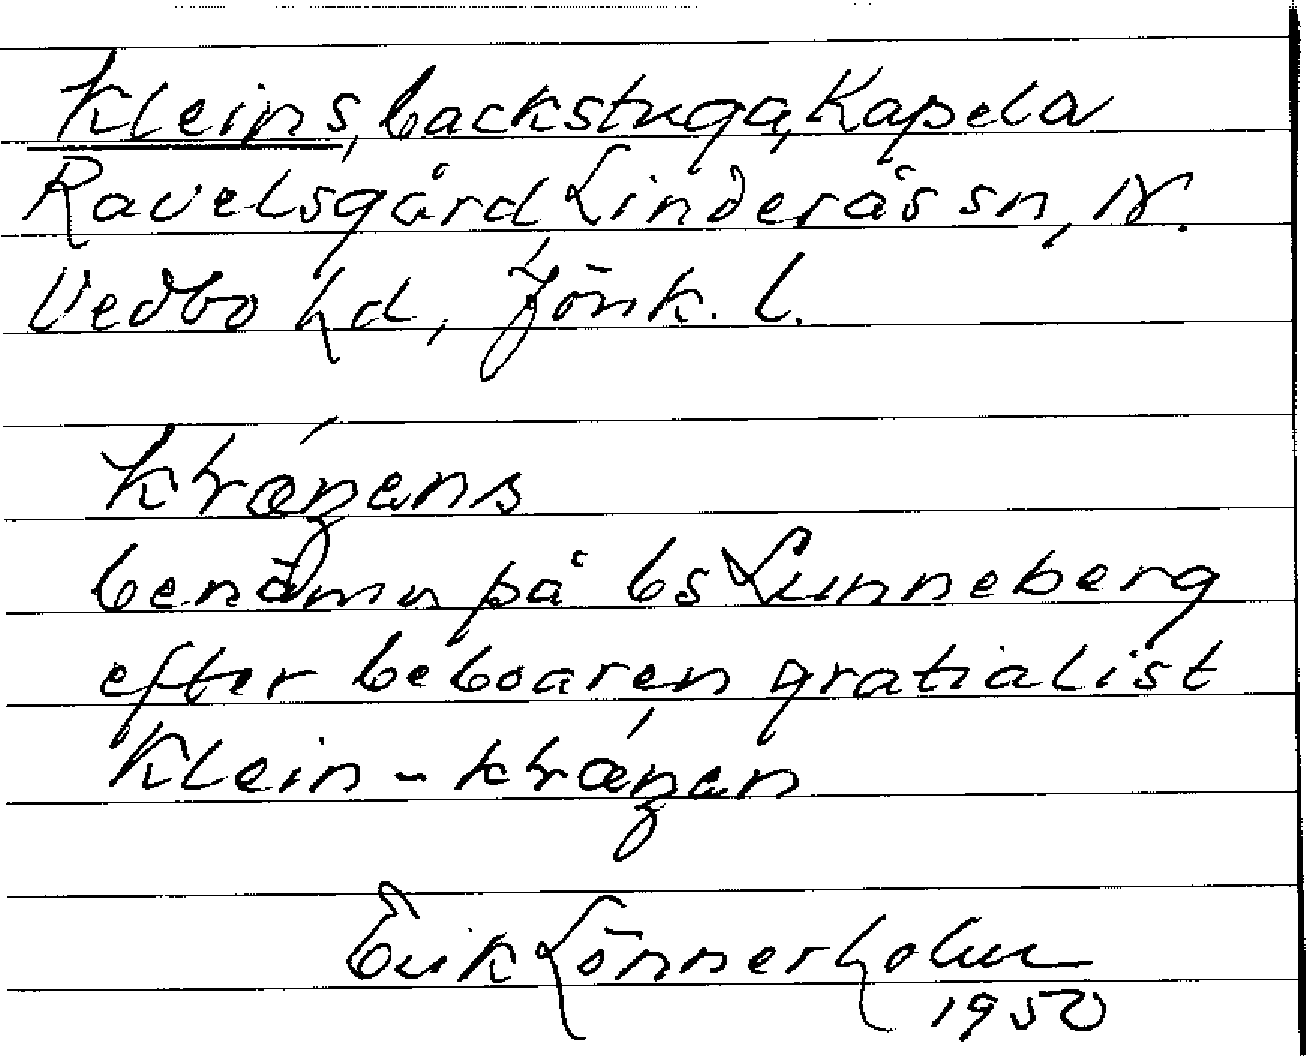 Kleins, backstuga, Kapela
Ravelsgård Linderås sn, N.
Vedbo hd, Jönk. l.
benämn på bs Lunneberg
efter beboaren gratialist
Klein -
Erik Lönnerholm
1950